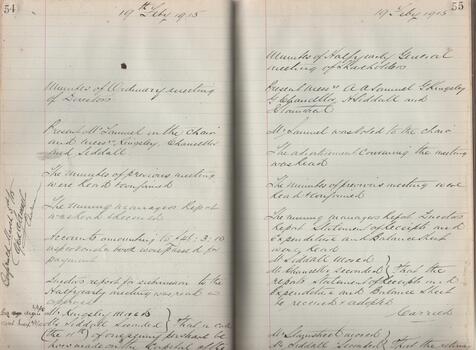 54
19th Feby 1915
Minutes of Ordinary meeting
of Directors
Present Mr Samuel in the chair
and Messrs Kingsley, Chancellor
and Siddall
The Minutes of previous meeting
were read & confirmed
The mining managers Report
was read & received
Accounts amounting to
as per cash book were Passed for
payment
Report for submission to the
Halfyearly meeting was read &
approved
Mr Kingsley moved
Mr Siddall seconded } That a call
of per share be
now made on the Capital of the
55
19 Feby 1915
Minutes of Halfyearly General
meeting of Shareholders
Present Messrs A A Samuel G Kingsley
G Chancellor, Siddall and
Mr Samuel was voted to the chair
The advertisement convening the meeting
was read
The Minutes of previous meeting were
read & confirmed
The mining managers Report Directors
Report Statement of Receipts and
Expenditure and Balance Sheet
were read
Mr Siddall moved
Mr Chancellor seconded } That the
reports & statement of Receipts and
Expenditure and Balance Sheet
be received & adopted
Carried
Mr moved
Mr Siddall seconded } That the